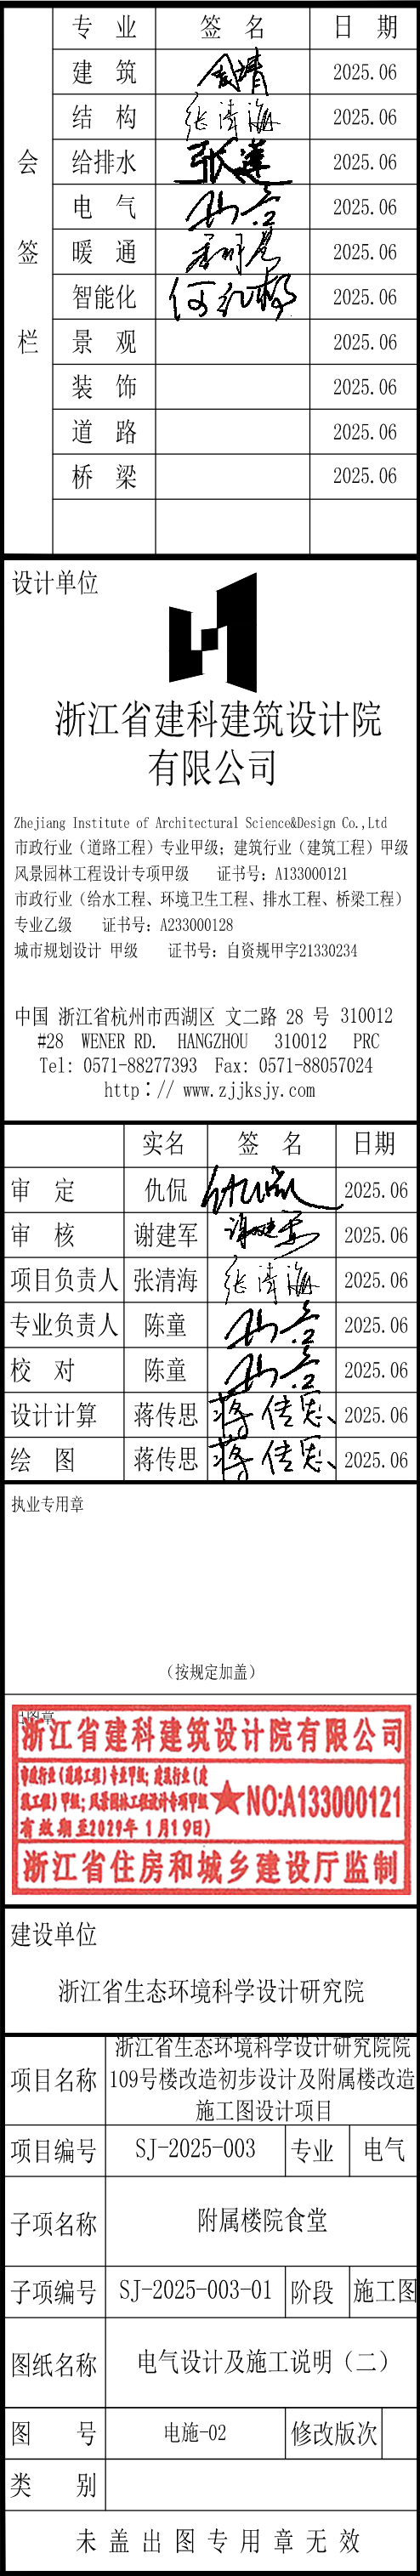 会签栏
专 业 签 名 日 期
建 筑 2025.06
结 构 张清海 2025.06
给排水 张莲 2025.06
电 气 2025.06
暖 通 2025.06
智能化 2025.06
景 观 2025.06
装 饰 2025.06
道 路 2025.06
桥 梁 2025.06
设计单位
浙江省建科建筑设计院
有限公司
Zhejiang Institute of Architectural Science&Design Co.,Ltd
市政行业（道路工程）专业甲级; 建筑行业（建筑工程）甲级
风景园林工程设计专项甲级 证书号: A133000121
市政行业（给水工程、环境卫生工程、排水工程、桥梁工程）
专业乙级 证书号: A233000128
城市规划设计 甲级 证书号: 自资规甲字21330234
中国 浙江省杭州市西湖区 文二路 28 号 310012
#28 WENER RD. HANGZHOU 310012 PRC
Tel: 0571-88277393 Fax: 0571-88057024
http：// www.zjjksjy.com
实名 签 名 日期
审 定 仇侃 仇侃 2025.06
审 核 谢建军 谢建军 2025.06
项目负责人 张清海 张清海 2025.06
专业负责人 陈童 2025.06
校 对 陈童 2025.06
设计计算 蒋传思 蒋传思 2025.06
绘 图 蒋传思 蒋传思 2025.06
执业专用章
（按规定加盖）
浙江省建科建筑设计院有限公司
市政行业(道路工程)专业甲级; 建筑行业(建
筑工程)甲级; 风景园林工程设计专项甲级
有效期至2029年1月19日)
★NO:A133000121
浙江省住房和城乡建设厅监制
建设单位
浙江省生态环境科学设计研究院
项目名称
浙江省生态环境科学设计研究院院
109号楼改造初步设计及附属楼改造
施工图设计项目
项目编号 SJ-2025-003 专业 电气
子项名称 附属楼院食堂
子项编号 SJ-2025-003-01 阶段 施工图
图纸名称 电气设计及施工说明（二）
图 号 电施-02 修改版次
类 别
未盖出图专用章无效